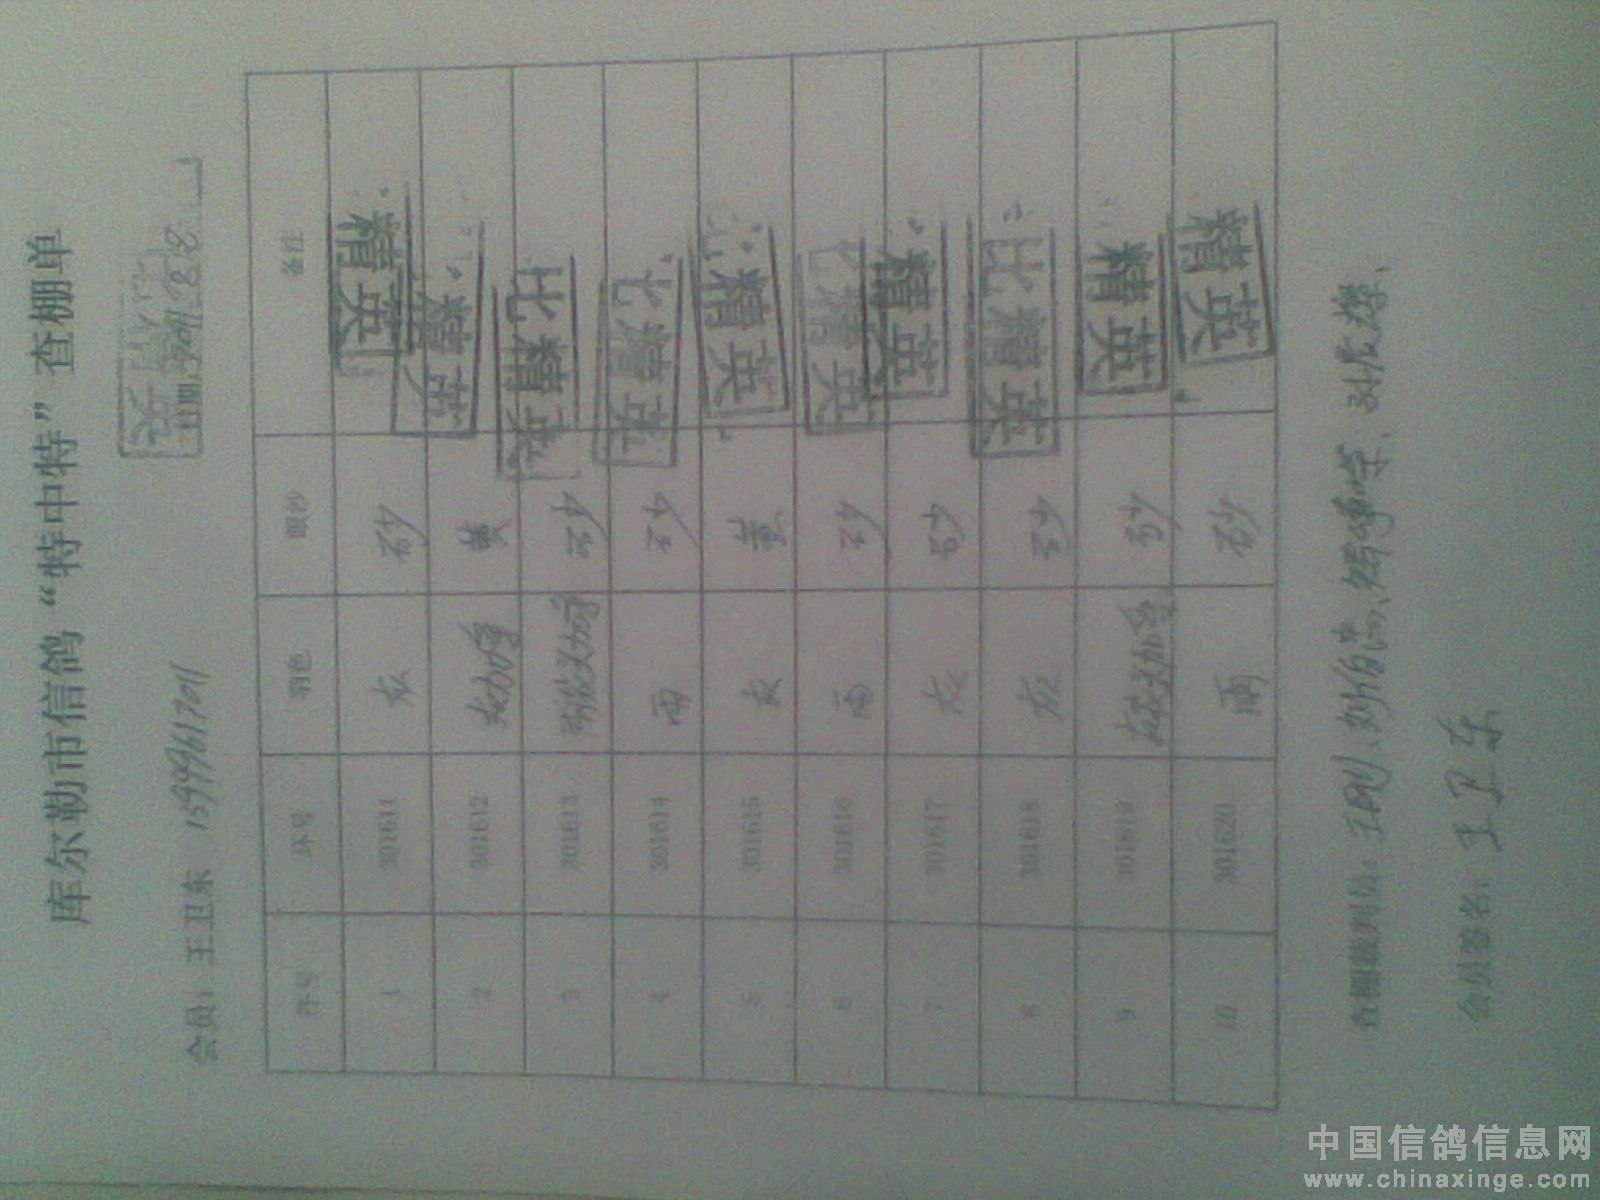 库尔勒市信鸽“特中特”查棚单
会员：王卫东 15999617011
日期：2011.8.8
序号 环号 羽色 眼沙 备注
1 301611 灰 砂 精英
2 301612 灰 黄 精英
3 301613 砂 比精英
4 301614 雨 砂 比精英
5 301615 灰 黄 精英
6 301616 雨 砂 比精英
7 301617 灰 砂 精英
8 301618 灰 砂 比精英
9 301619 砂 精英
10 301620 雨 砂 精英
查棚裁判员：
会员签名：王卫东
中国信鸽信息网
www.chinaxinge.com